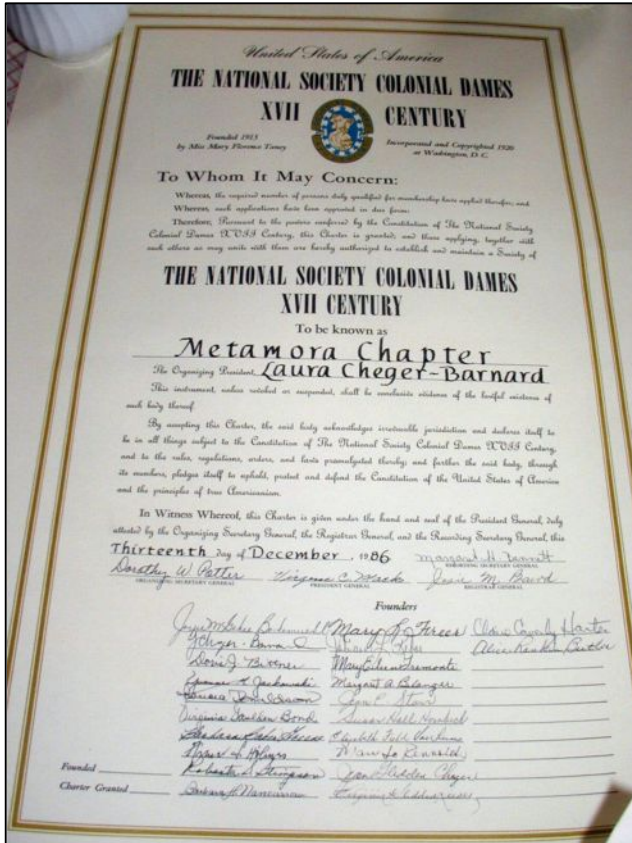 United States of America
THE NATIONAL SOCIETY COLONIAL DAMES
XVII CENTURY
Founded 1915
by Miss Mary Florence Taney
Incorporated and Copyrighted 1920
at Washington, D. C.
To Whom It May Concern:
Whereas, the required number of persons duly qualified for membership have applied therefor, and
Whereas, such applications have been approved in due form;
Therefore, Pursuant to the powers conferred by the Constitution of The National Society
Colonial Dames XVII Century, this Charter is granted; and those applying, together with
such others as may unite with them are hereby authorized to establish and maintain a Society of
THE NATIONAL SOCIETY COLONIAL DAMES
XVII CENTURY
To be known as
Metamora Chapter
The Organizing President, Laura Cheger-Barnard
This instrument, unless revoked or suspended, shall be conclusive evidence of the lawful existence of
such body thereof.
By accepting this Charter, the said body acknowledges irrevocable jurisdiction and declares itself to
be in all things subject to the Constitution of The National Society Colonial Dames XVII Century,
and to the rules, regulations, orders, and laws promulgated thereby; and further the said body, through
its members, pledges itself to uphold, protect and defend the Constitution of the United States of America
and the principles of true Americanism.
In Witness Whereof, this Charter is given under the hand and seal of the President General, duly
attested by the Organizing Secretary General, the Registrar General, and the Recording Secretary General, this
Thirteenth day of December, 1986
Margaret H.
RECORDING SECRETARY GENERAL
Dorothy W. Potter Virginia C. M. Baird
ORGANIZING SECRETARY GENERAL PRESIDENT GENERAL REGISTRAR GENERAL
Founders
Mary L. Freer Harter
Alice
Doris J. Bittner Mary Eileen Tremonte
Margaret A. Belanger
Jean E.
Virginia Bond Susan Hall
Barbara Elizabeth
Mary Jo
Founded Roberta Stimpson Jean Cheger
Charter Granted Barbara Virginia